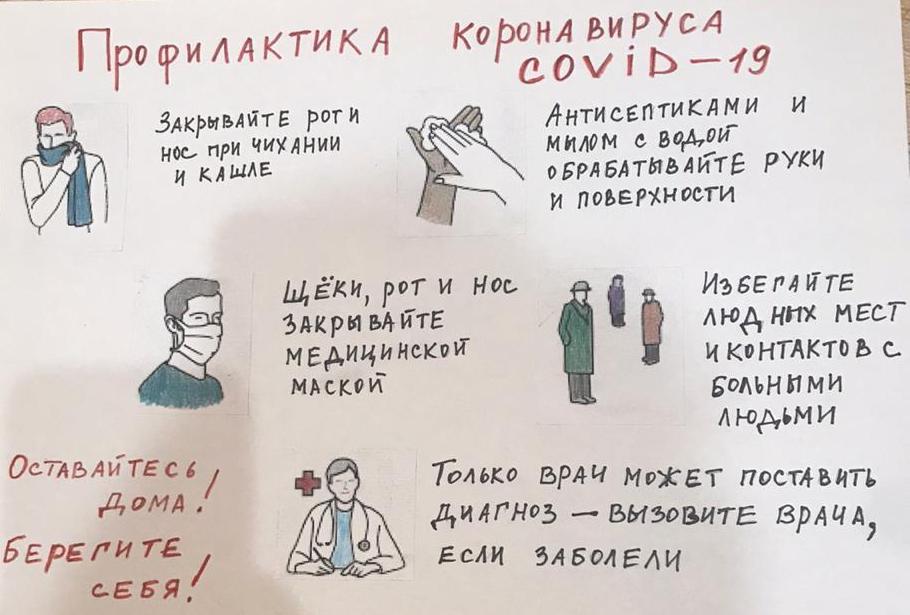 Профилактика коронавируса
COVID-19
Закрывайте рот и
нос при чихании
и кашле
Антисептиками и
мылом с водой
обрабатывайте руки
и поверхности
Щёки, рот и нос
закрывайте
медицинской
маской
Избегайте
людных мест
и контактов с
больными
людьми
Оставайтесь
дома!
Берегите
себя!
Только врач может поставить
диагноз — вызовите врача,
если заболели